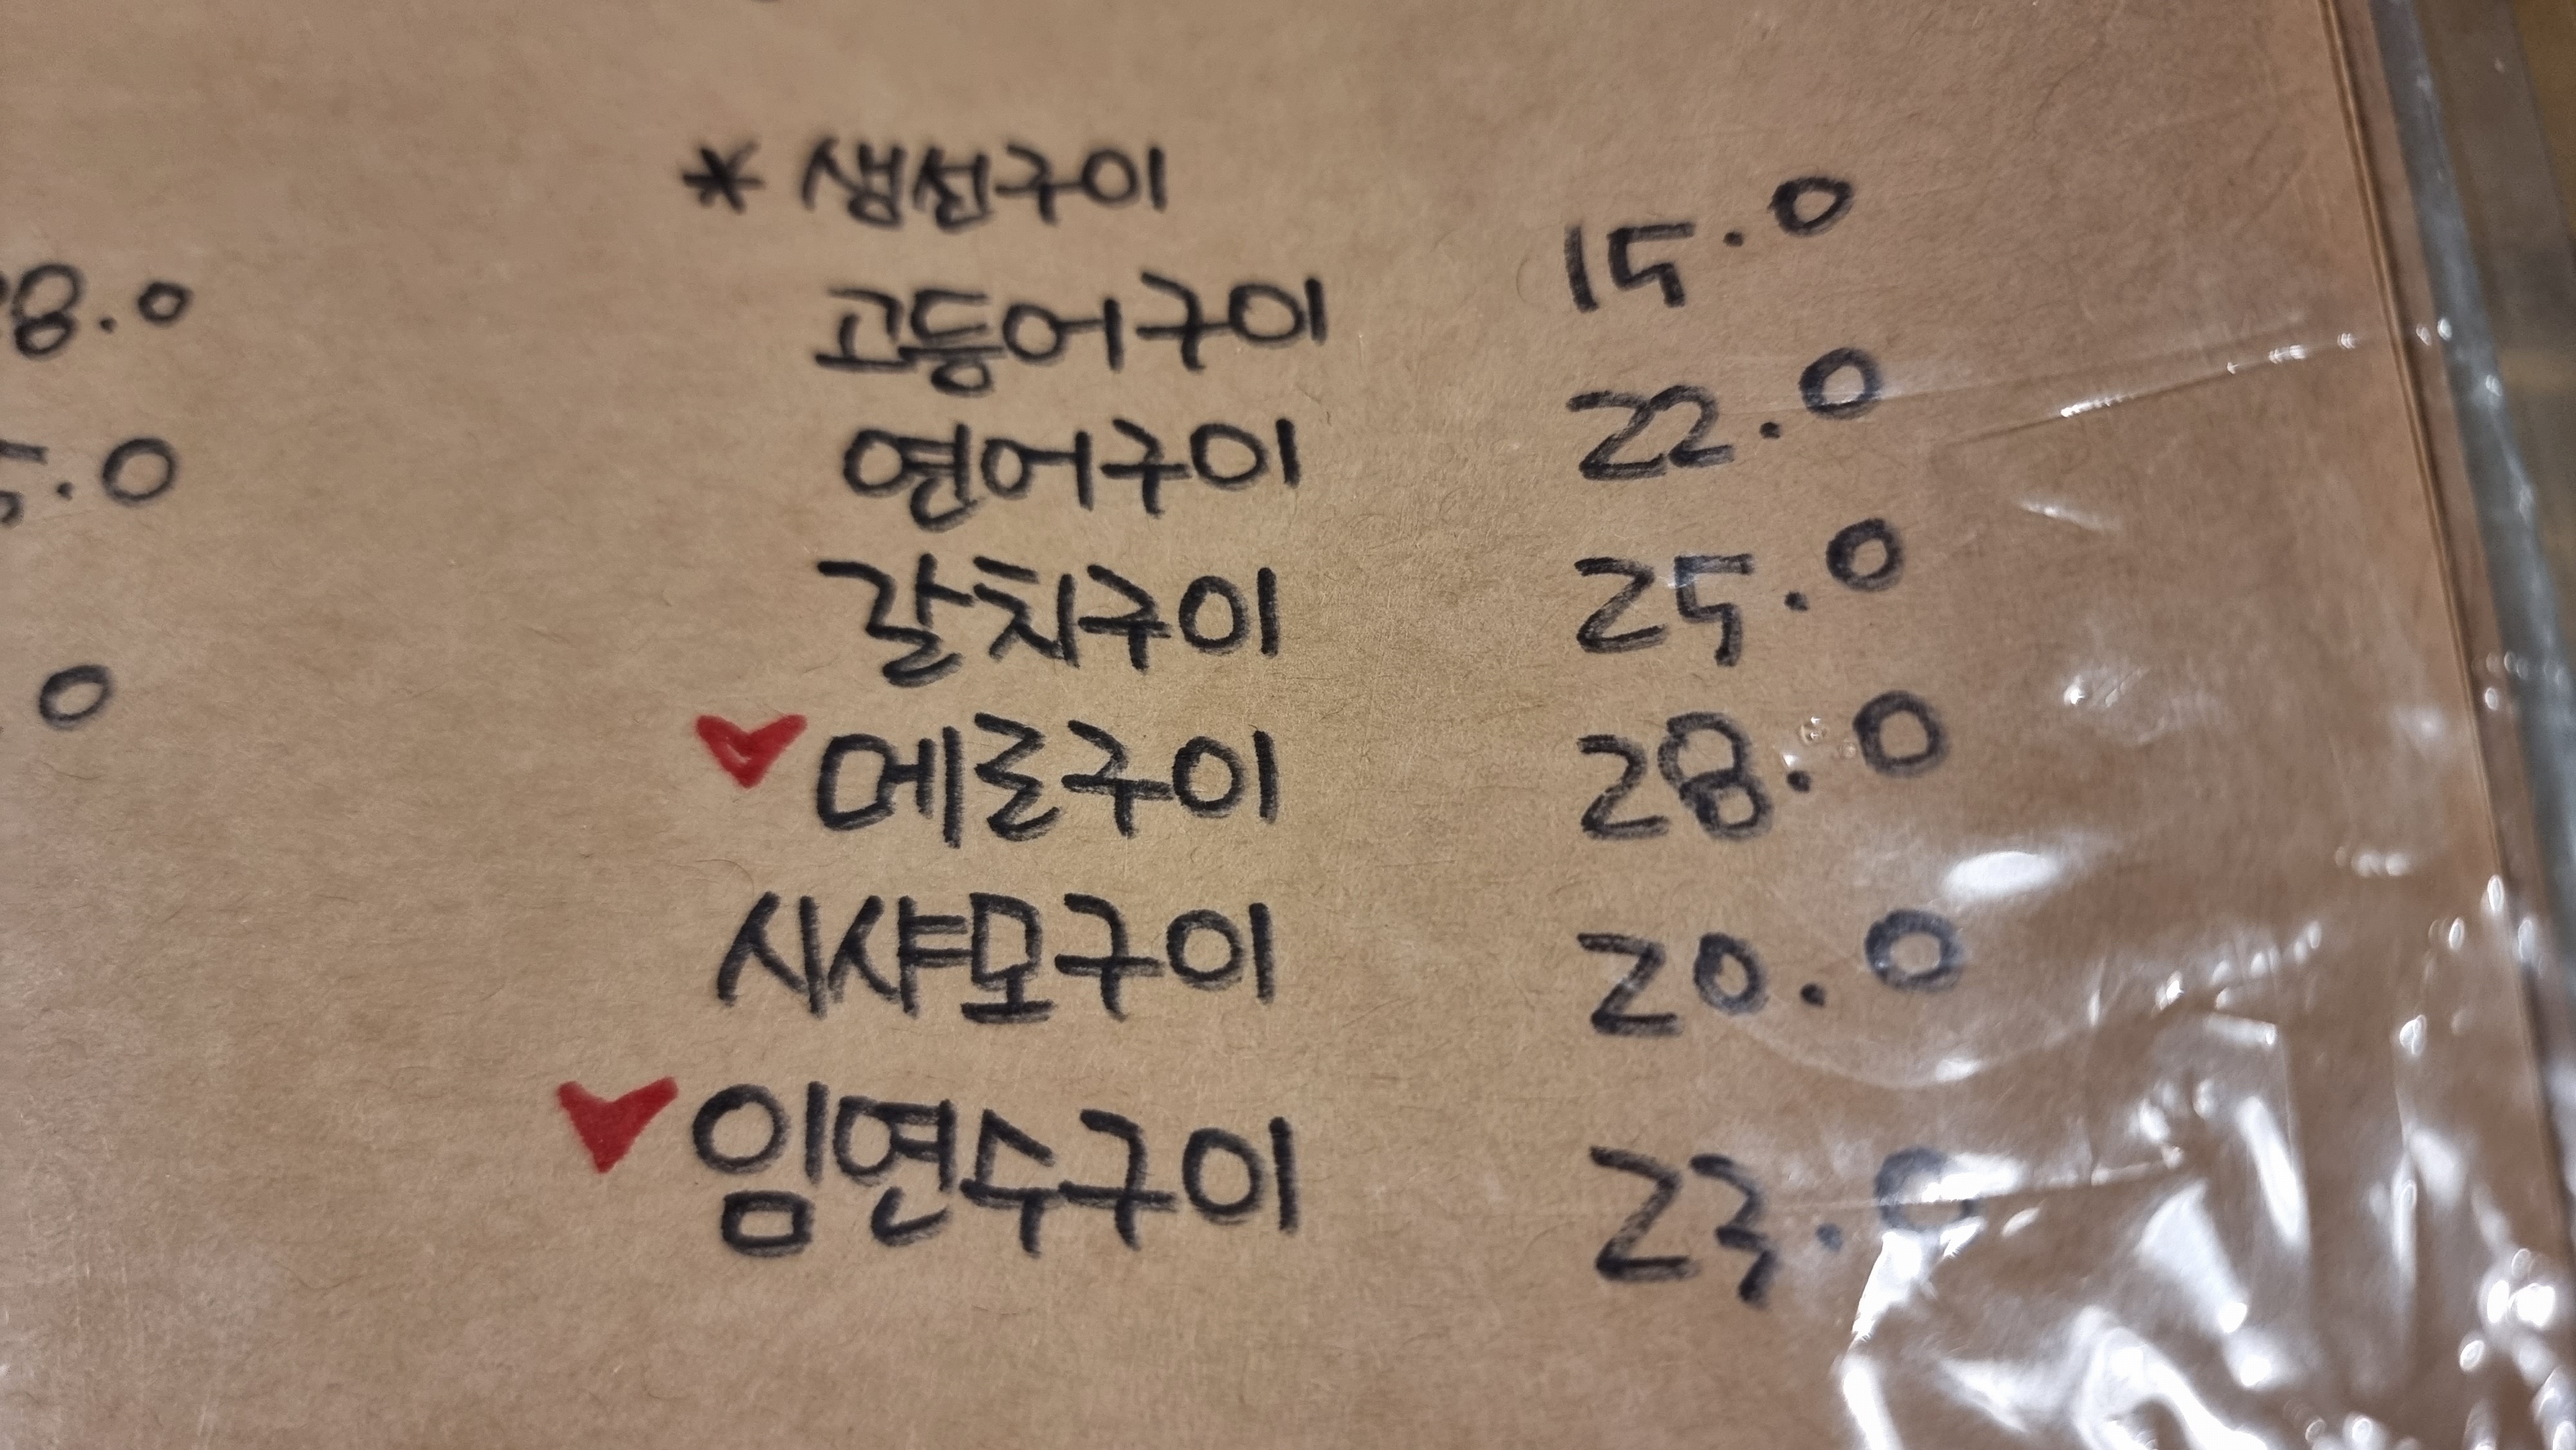 * 생선구이
고등어구이 15.0
연어구이 22.0
갈치구이 25.0
메로구이 28.0
시샤모구이 20.0
임연수구이 23.0
8.0
5.0
0